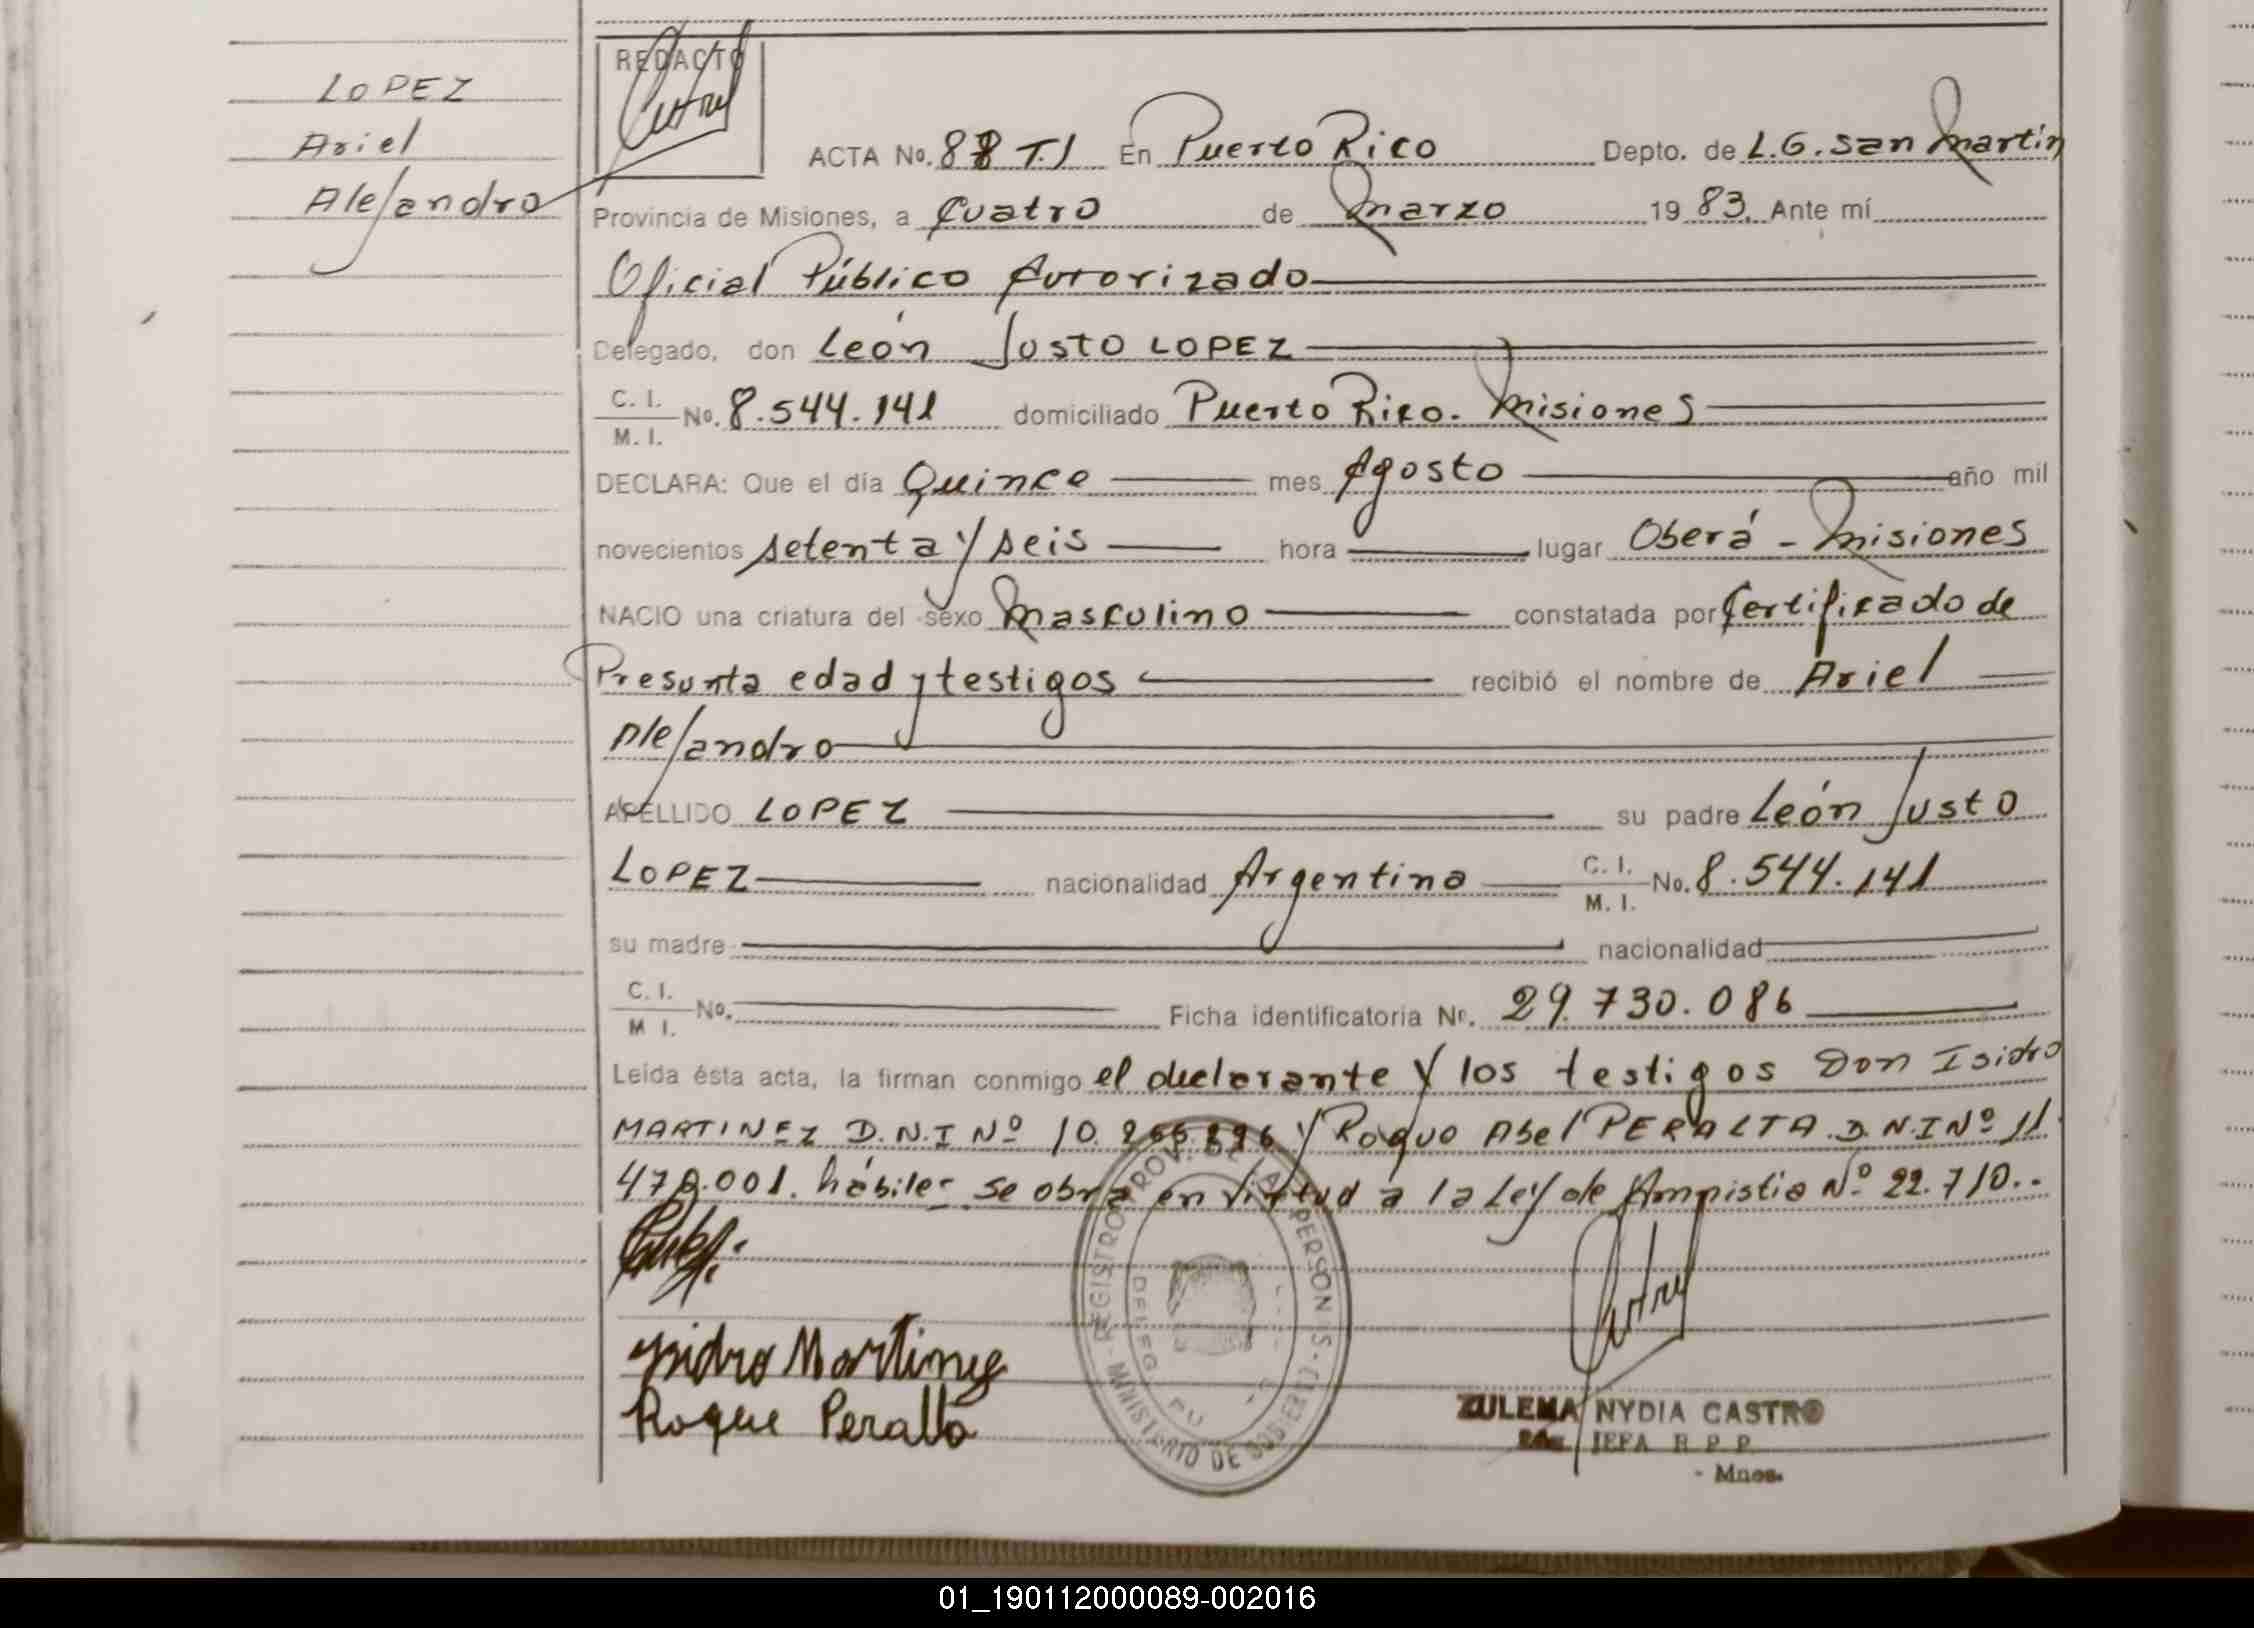 LOPEZ
Ariel
Alejandro
REDACTO
ACTA No. 88 T.I En Puerto Rico Depto. de L.G. San Martín
Provincia de Misiones, a Cuatro de Marzo 19 83. Ante mí
Oficial Público Autorizado
Delegado, don León Justo LOPEZ
C. I.
M. I. No. 8.544.141 domiciliado Puerto Rico. Misiones
DECLARA: Que el día Quince mes Agosto año mil
novecientos setenta y seis hora lugar Oberá - Misiones
NACIO una criatura del sexo Masculino constatada por Certificado de
Presunta edad y testigos recibió el nombre de Ariel
Alejandro
APELLIDO LOPEZ su padre León Justo
LOPEZ nacionalidad Argentina C. I. M. I. No. 8.544.141
su madre nacionalidad
C. I.
M I. No. Ficha identificatoria Nº. 29.730.086
Leída ésta acta, la firman conmigo el declarante y los testigos Don Isidro
MARTINEZ D.N.I Nº 10. y Roque Abel PERALTA D.N.I Nº 11.
.001. hábiles se obra en virtud a la Ley de Amnistia Nº 22.710..
Isidro Martinez
Roque Peralta
REGISTRO PROV. DE LAS PERSONAS - MINISTERIO DE GOBIERNO
ZULEMA NYDIA CASTRO
JEFA R. P. P.
- Mnes.
01_190112000089-002016